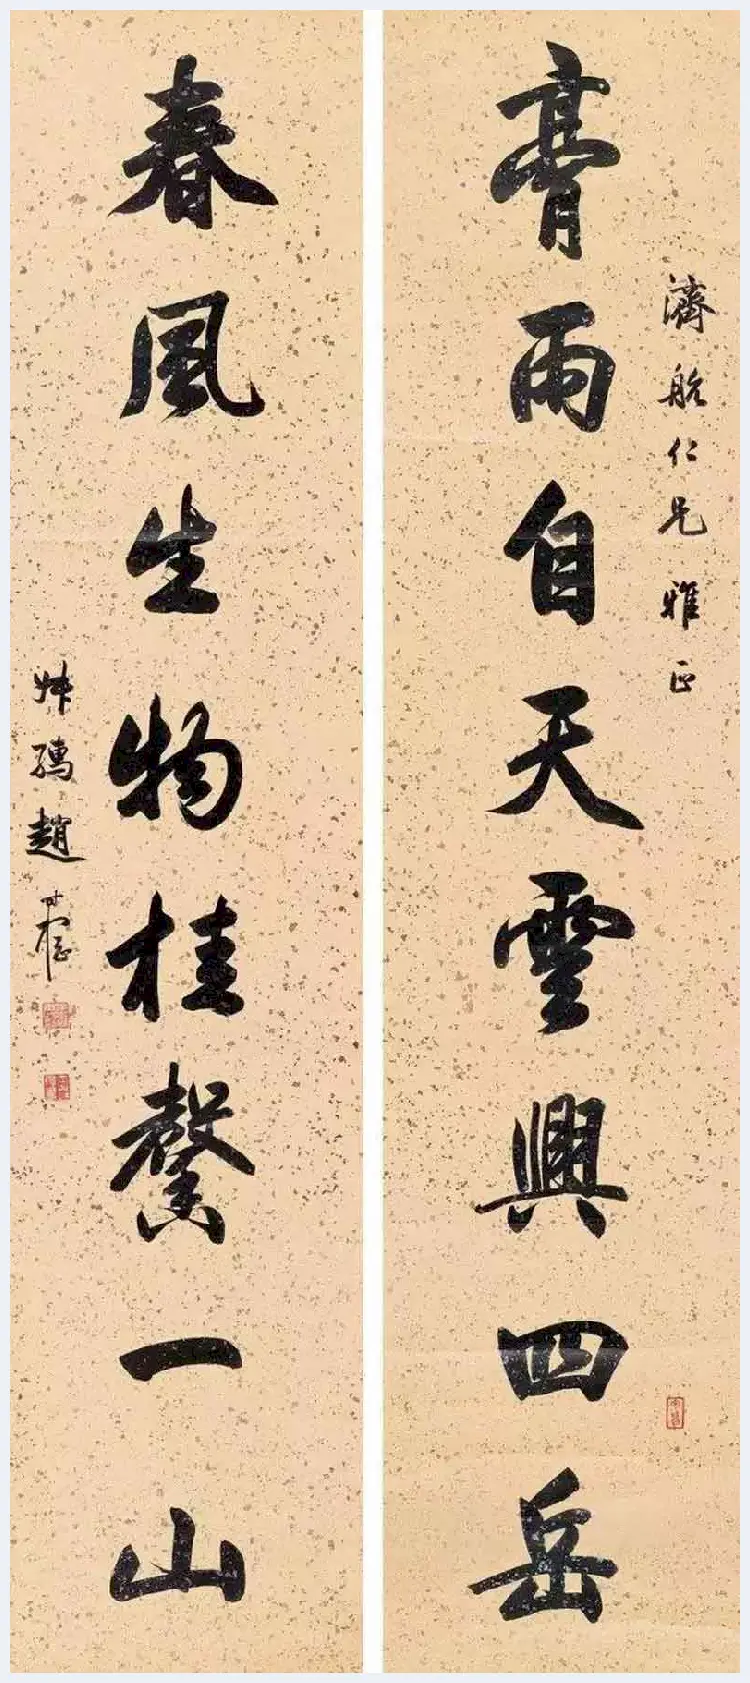 濟航仁兄雅正
膏雨自天雲興四岳
春風生物桂馨一山
叔孺趙時棡